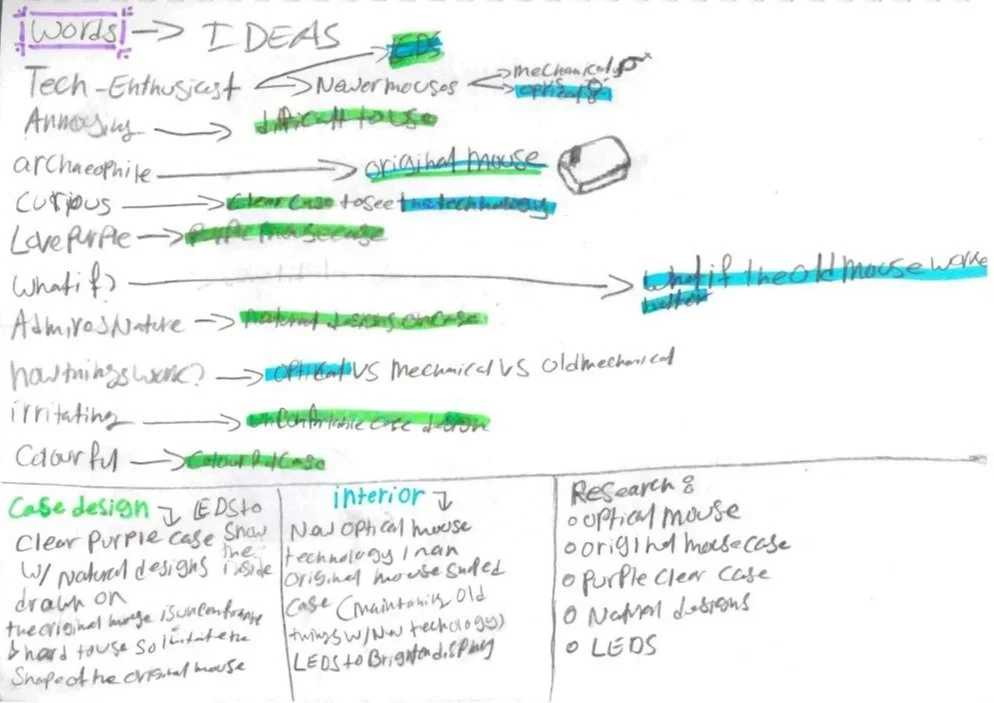 Words → IDEAS
LEDS
Tech-Enthusicst → Newer mouses → mechanical
vs
optical
Annoying → difficult to use
archaeophile → original mouse
Curious → Clear Case to see the technology
Love Purple → Purple mouse case
What if? → What if the old mouse worke
better
Admires Nature → Natural designs on case
how things work? → optical VS Mechnical VS Old mechanical
irritating → uncomfortable case design
Colourful → Colourful Case
Case design ↴ LEDS to
Clear Purple case Show
the
w/ Natural designs inside
drawn on
the original mouse is uncomfortable
& hard to use so imitate the
Shape of the original mouse
interior ↴
New optical mouse
technology in an
Original mouse shaped
Case (maintaining Old
things w/ New techology)
LEDS to Brighten display
Research:
o optical mouse
o original mouse case
o purple clear case
o Natural designs
o LEDS